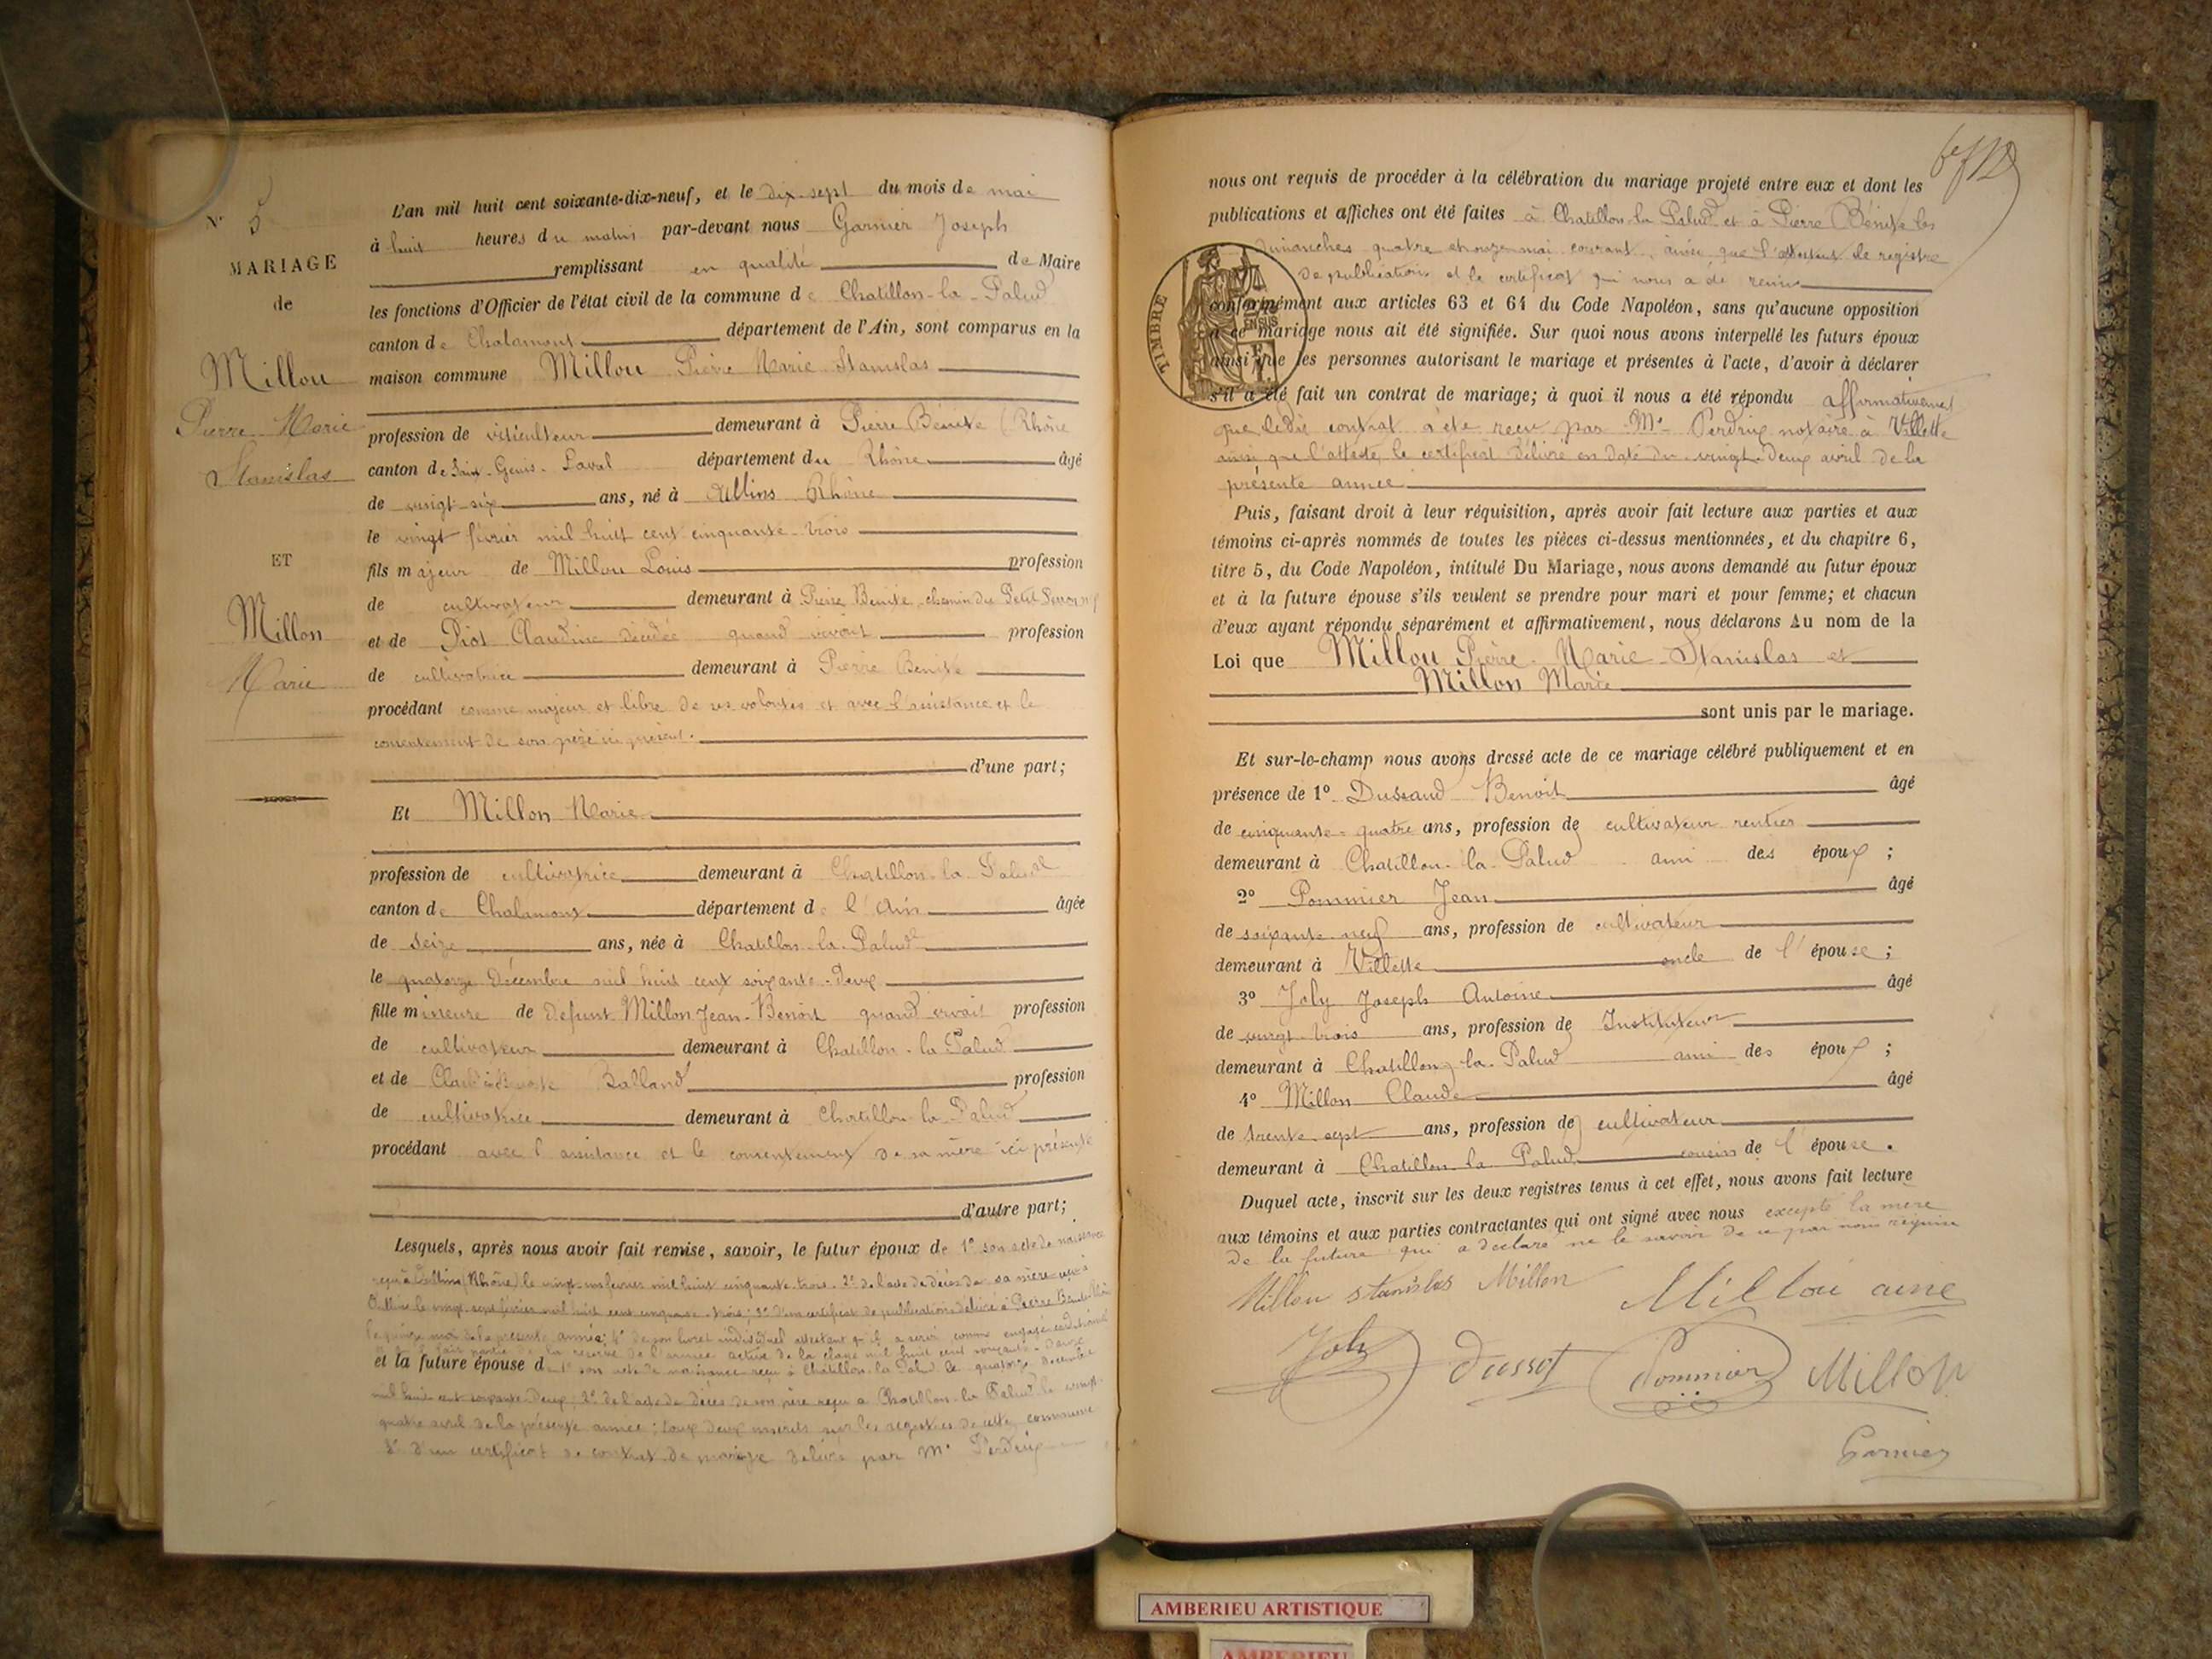 N° 5
MARIAGE
de
Millou
Pierre Marie
Stanislas
ET
Millon
Marie
L'an mil huit cent soixante-dix-neuf, et le dix-sept du mois de mai
à huit heures du matin par-devant nous Garnier Joseph
remplissant en qualité de Maire
les fonctions d'Officier de l'état civil de la commune de Chatillon-la-Palud
canton de Chalamont département de l'Ain, sont comparus en la
maison commune Millou Pierre Marie Stanislas
profession de viticulteur demeurant à Pierre Bénite (Rhône
canton de Saint-Genis-Laval département du Rhône âgé
de vingt-six ans, né à Oullins Rhône
le vingt février mil huit cent cinquante-trois
fils majeur de Millou Louis profession
de cultivateur demeurant à Pierre Bénite, chemin du Petit
et de Piot Claudine décédée quand vivait profession
de cultivatrice demeurant à Pierre Bénite
procédant comme majeur et libre de ses volontés et avec l'assistance et le
consentement de son père ici présent.
d'une part;
Et Millon Marie
profession de cultivatrice demeurant à Chatillon-la-Palud
canton de Chalamont département de l'Ain âgée
de seize ans, née à Chatillon-la-Palud
le quatorze Décembre mil huit cent soixante-deux
fille mineure de défunt Millon Jean-Benoit quand vivait profession
de cultivateur demeurant à Chatillon-la-Palud
et de Balland profession
de cultivatrice demeurant à Chatillon-la-Palud
procédant avec l'assistance et le consentement de sa mère ici présente
d'autre part;
Lesquels, après nous avoir fait remise, savoir, le futur époux de 1° son acte de naissance
reçu à Oullins (Rhône) le vingt-un février mil huit cinquante trois 2° de l'acte de décès de sa mère reçu à
Oullins le vingt-sept février mil huit cent cinquante-trois; 3° d'un certificat de publications délivré à Pierre Bénite
le quinze mai de la présente année; 4° de son livret individuel attestant qu'il a servi comme engagé conditionnel
fait partie de la réserve de l'armée active de la classe mil huit cent soixante-douze
et la future épouse de 1° son acte de naissance reçu à Chatillon-la-Palud le quatorze décembre
mil huit cent soixante-deux, 2° de l'acte de décès de son père reçu à Chatillon-la-Palud le vingt-
quatre avril de la présente année; tous deux inscrits sur les registres de cette commune
3° d'un certificat de contrat de mariage délivré par Me Perdrix
nous ont requis de procéder à la célébration du mariage projeté entre eux et dont les
publications et affiches ont été faites à Chatillon-la-Palud et à Pierre Bénite les
dimanches quatre et onze mai courant, ainsi que l'attestent le registre
de publications et le certificat qui nous a été remis
TIMBRE
conformément aux articles 63 et 64 du Code Napoléon, sans qu'aucune opposition
à ce mariage nous ait été signifiée. Sur quoi nous avons interpellé les futurs époux
ainsi que les personnes autorisant le mariage et présentes à l'acte, d'avoir à déclarer
s'il a été fait un contrat de mariage; à quoi il nous a été répondu affirmativement
que ledit contrat a été reçu par Me Perdrix notaire à Villette
ainsi que l'atteste le certificat délivré en date du vingt-deux avril de la
présente année
Puis, faisant droit à leur réquisition, après avoir fait lecture aux parties et aux
témoins ci-après nommés de toutes les pièces ci-dessus mentionnées, et du chapitre 6,
titre 5, du Code Napoléon, intitulé Du Mariage, nous avons demandé au futur époux
et à la future épouse s'ils veulent se prendre pour mari et pour femme; et chacun
d'eux ayant répondu séparément et affirmativement, nous déclarons Au nom de la
Loi que Millou Pierre-Marie-Stanislas et
Millon Marie
sont unis par le mariage.
Et sur-le-champ nous avons dressé acte de ce mariage célébré publiquement et en
présence de 1° Dussaud Benoit âgé
de cinquante-quatre ans, profession de cultivateur rentier
demeurant à Chatillon-la-Palud ami des époux ;
2° Pommier Jean âgé
de soixante-neuf ans, profession de cultivateur
demeurant à Villette oncle de l'épouse ;
3° Joly Joseph Antoine âgé
de vingt trois ans, profession de Instituteur
demeurant à Chatillon-la-Palud ami des époux ;
4° Millon Claude âgé
de trente sept ans, profession de cultivateur
demeurant à Chatillon la Palud cousin de l'épouse.
Duquel acte, inscrit sur les deux registres tenus à cet effet, nous avons fait lecture
aux témoins et aux parties contractantes qui ont signé avec nous excepté la mère
de la future qui a déclaré ne le savoir de ce par nous requise
Millou stanislas Millon Millou ainé
Joly Dussot Pommier Millon
Garnier
AMBERIEU ARTISTIQUE
AMBERIEU